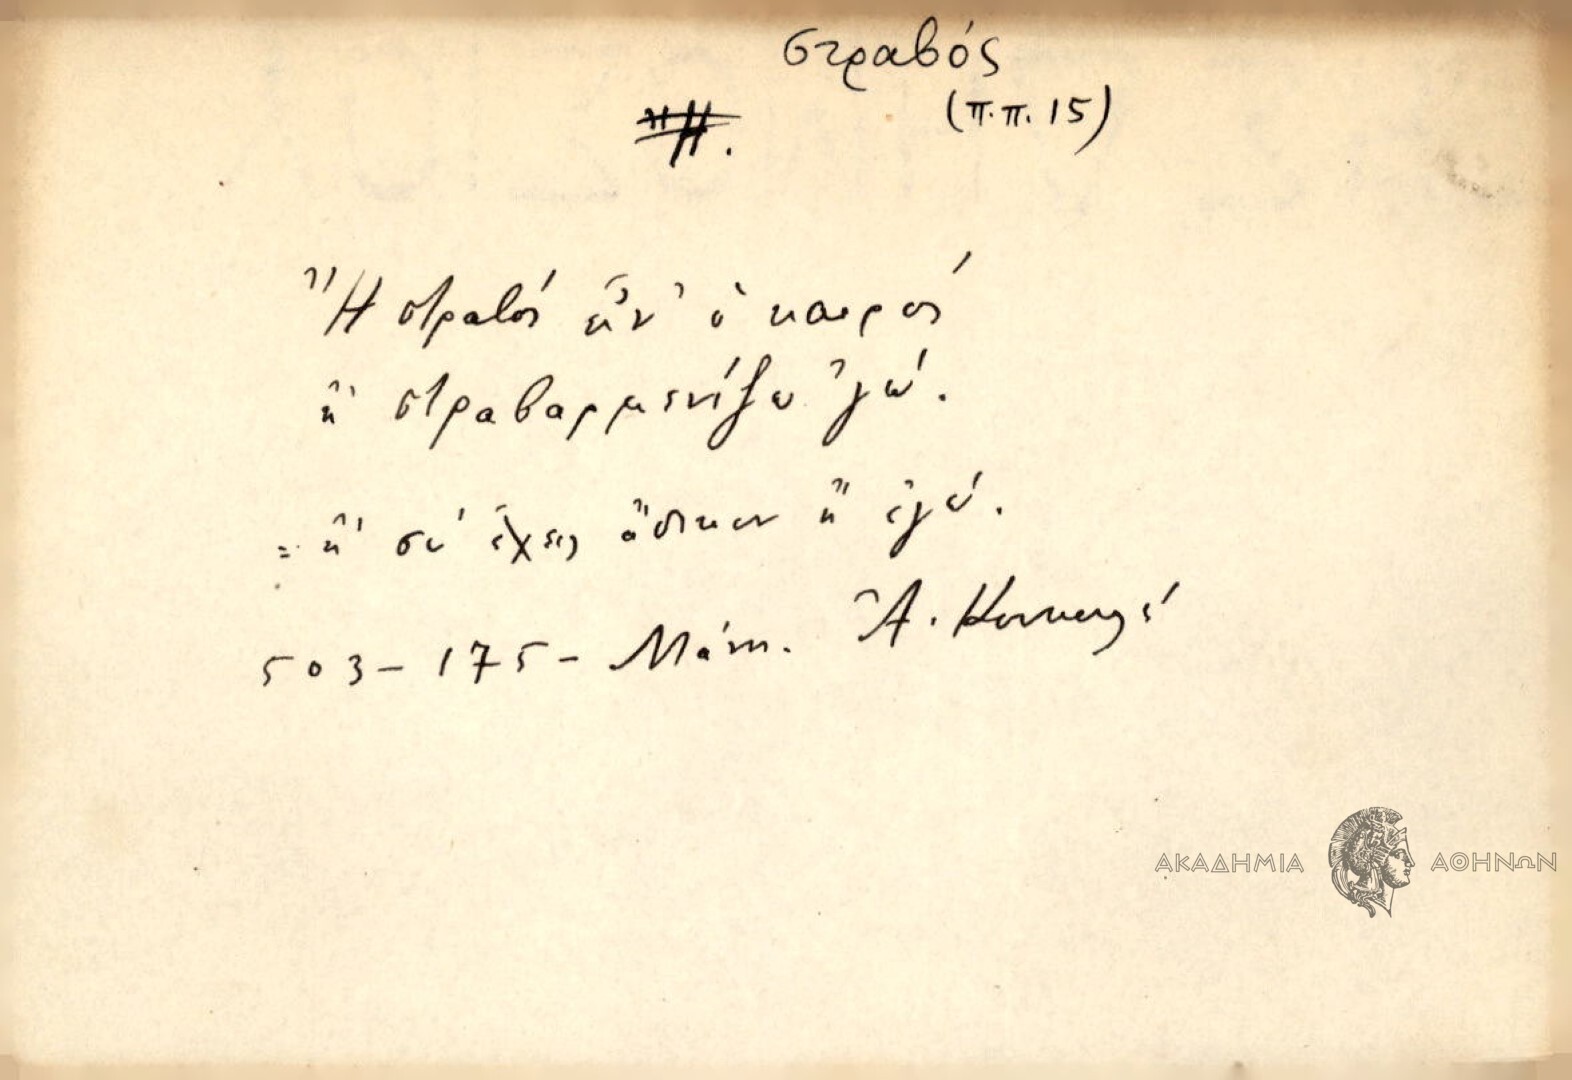 στραβός
(π.π. 15)
Ἢ στραβός εἶν' ὁ καιρός
ἢ στραβαρμενίζω 'γώ.
= ἢ σύ ἔχεις ἄδικον ἢ ἐγώ.
503 - 175 - Μάνη. Ἀ.
ΑΚΑΔΗΜΙΑ ΑΘΗΝΩΝ